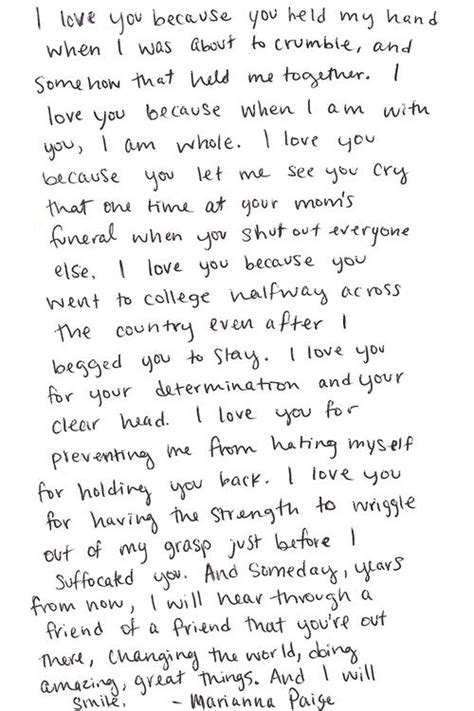 I love you because you held my hand
when I was about to crumble, and
somehow that held me together. I
love you because when I am with
you, I am whole. I love you
because you let me see you cry
that one time at your mom's
funeral when you shut out everyone
else. I love you because you
went to college halfway across
the country even after I
begged you to stay. I love you
for your determination and your
clear head. I love you for
preventing me from hating myself
for holding you back. I love you
for having the strength to wriggle
out of my grasp just before I
suffocated you. And someday, years
from now, I will hear through a
friend of a friend that you're out
there, changing the world, doing
amazing, great things. And I will
smile. - Marianna Paige